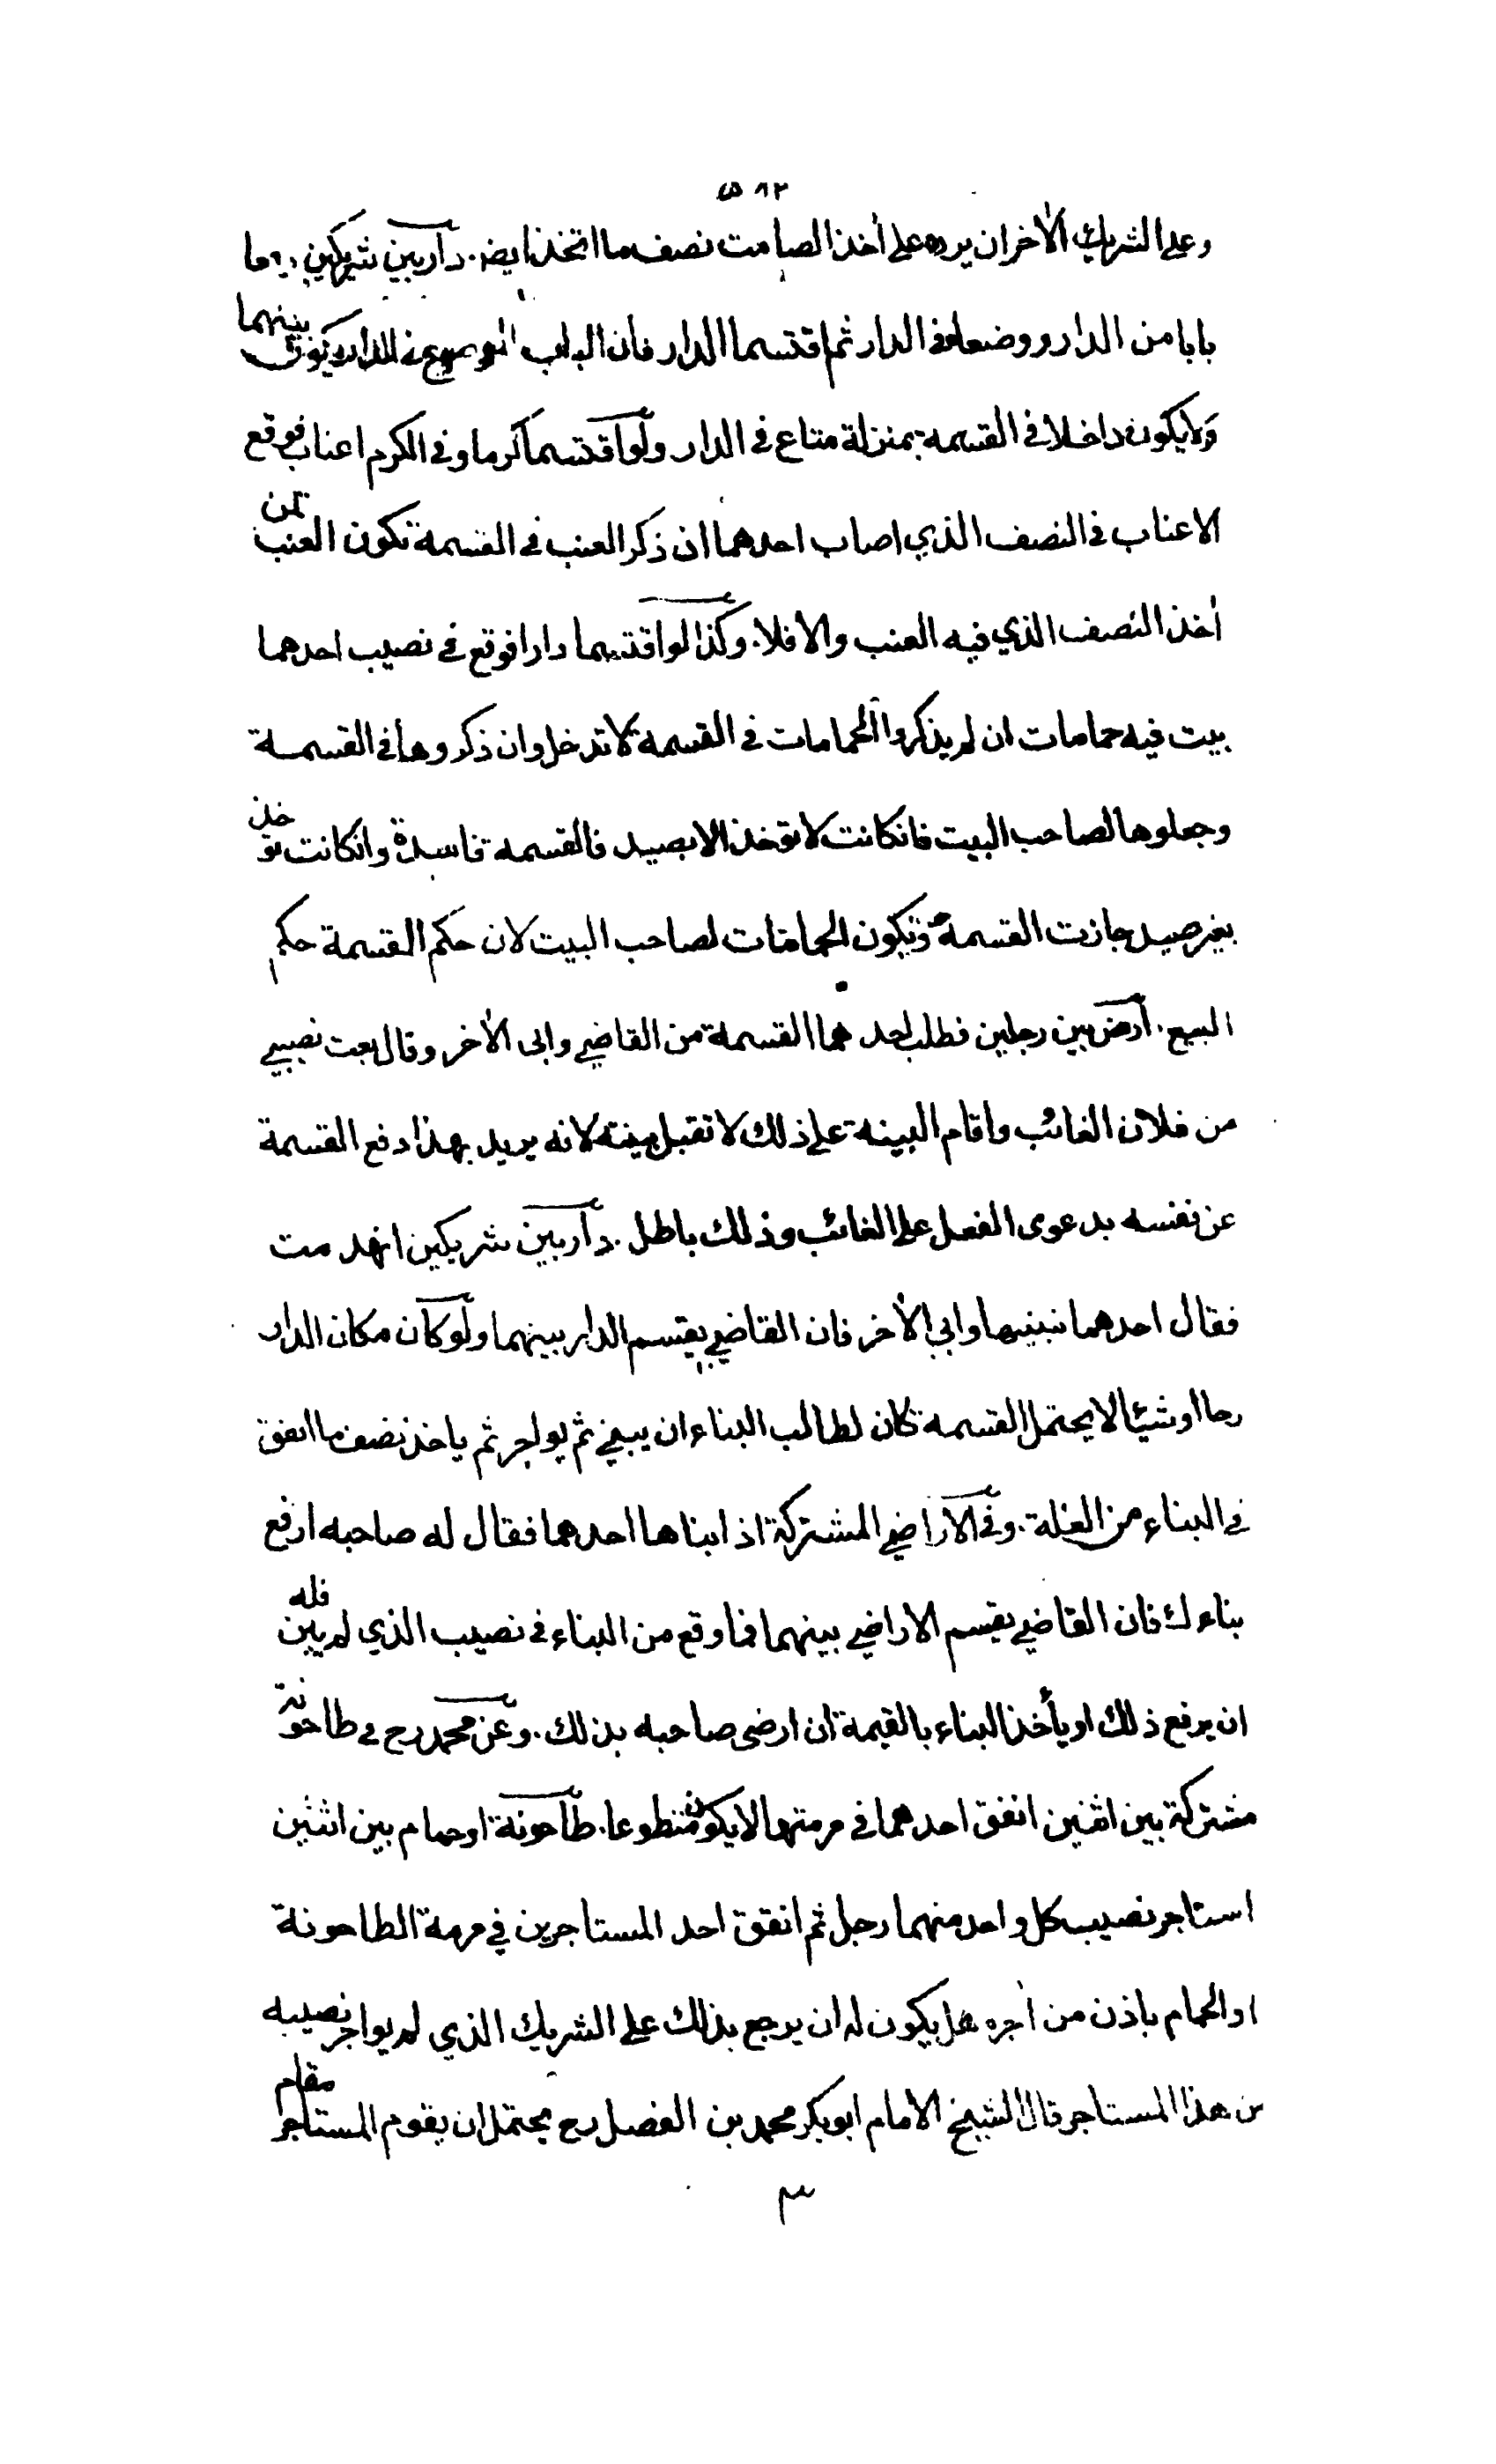 ٥٨٢
وعلى الشريك الأخران يرده على أخذ الصامت نصف ما اتخذ ايضه. دار بين شريكين
بابا من الدار ووضعاه في الدار ثم اقتسما الدار فان الباب الموضوع في الدار يكون بينهما
ولا يكون داخلا في القسمة بمنزلة متاع في الدار ولو اقتسما كرما وفي الكرم اعناب فوقع
الاعناب في النصف الذي اصاب احدهما ان ذكر العنب في القسمة تكون العنب لمن
أخذ النصف الذي فيه العنب والا فلا. وكذا لو اقتسما دارا فوقع في نصيب احدهما
بيت فيه حمامات ان لم يذكروا الحمامات في القسمة لا تدخل وان ذكروها في القسمة
وجعلوها لصاحب البيت فانكانت لا تؤخذ الا بصيد فالقسمة فاسدة وانكانت تؤخذ
بغير صيد جازت القسمة وتكون الحمامات لصاحب البيت لان حكم القسمة حكم
البيع. أرض بين رجلين فطلب احدهما القسمة من القاضي وابى الأخر وقال بعت نصيبي
من فلان الغائب واقام البينة على ذلك لا تقبل بينته لانه يريد بهذا دفع القسمة
عن نفسه بدعوى الفعل على الغائب وذلك باطل. دار بين شريكين انهدمت
فقال احدهما نبنيها وابى الأخر فان القاضي يقتسم الدار بينهما ولو كان مكان الدار
رحا او شيئا لا يحتمل القسمة كان لطالب البناء ان يبني ثم يواجر ثم ياخذ نصف ما انفق
في البناء من الغلة. وفي الاراضي المشتركة اذا بناها احدهما فقال له صاحبه ارفع
بناءك فان القاضي يقسم الاراضي بينهما فما وقع من البناء في نصيب الذي لم يبن فله
ان يرفع ذلك او يأخذ البناء بالقيمة ان ارضى صاحبه بذلك. وعن محمد رح في طاحونة
مشتركة بين اثنين انفق احدهما في مرمتها لا يكون متطوعا. طاحونة او حمام بين اثنين
استاجر نصيب كل واحد منهما رجل ثم انفق احد المستاجرين في مرمة الطاحونة
او الحمام باذن من أجره هل يكون له ان يرجع بذلك على الشريك الذي لم يواجر نصيبه
من هذا المستاجر قال الشيخ الامام ابو بكر محمد بن الفضل رح يحتمل ان يقوم المستاجر مقام